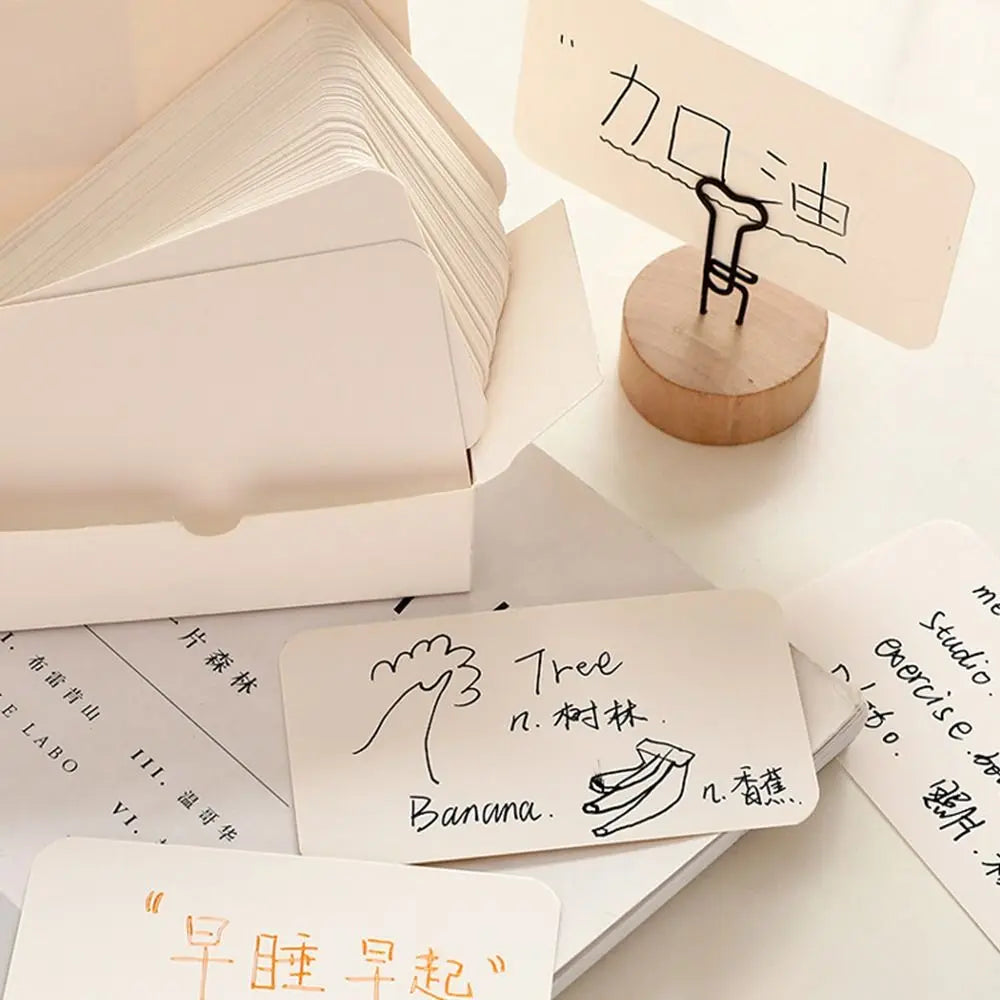 " 加油
一片森林
I. 布雷肯山
E LABO
III. 温哥华
VI.
Tree
n. 树林.
Banana.
n. 香蕉.
studio.
exercise.
照片.
"早睡早起"